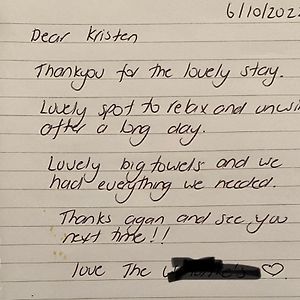 6/10/202
Dear Kristen
Thankyou for the lovely stay.
Lovely spot to relax and unwi
after a long day.
Lovely big towels and we
had everything we needed.
Thanks agan and see you
next time!!
love The